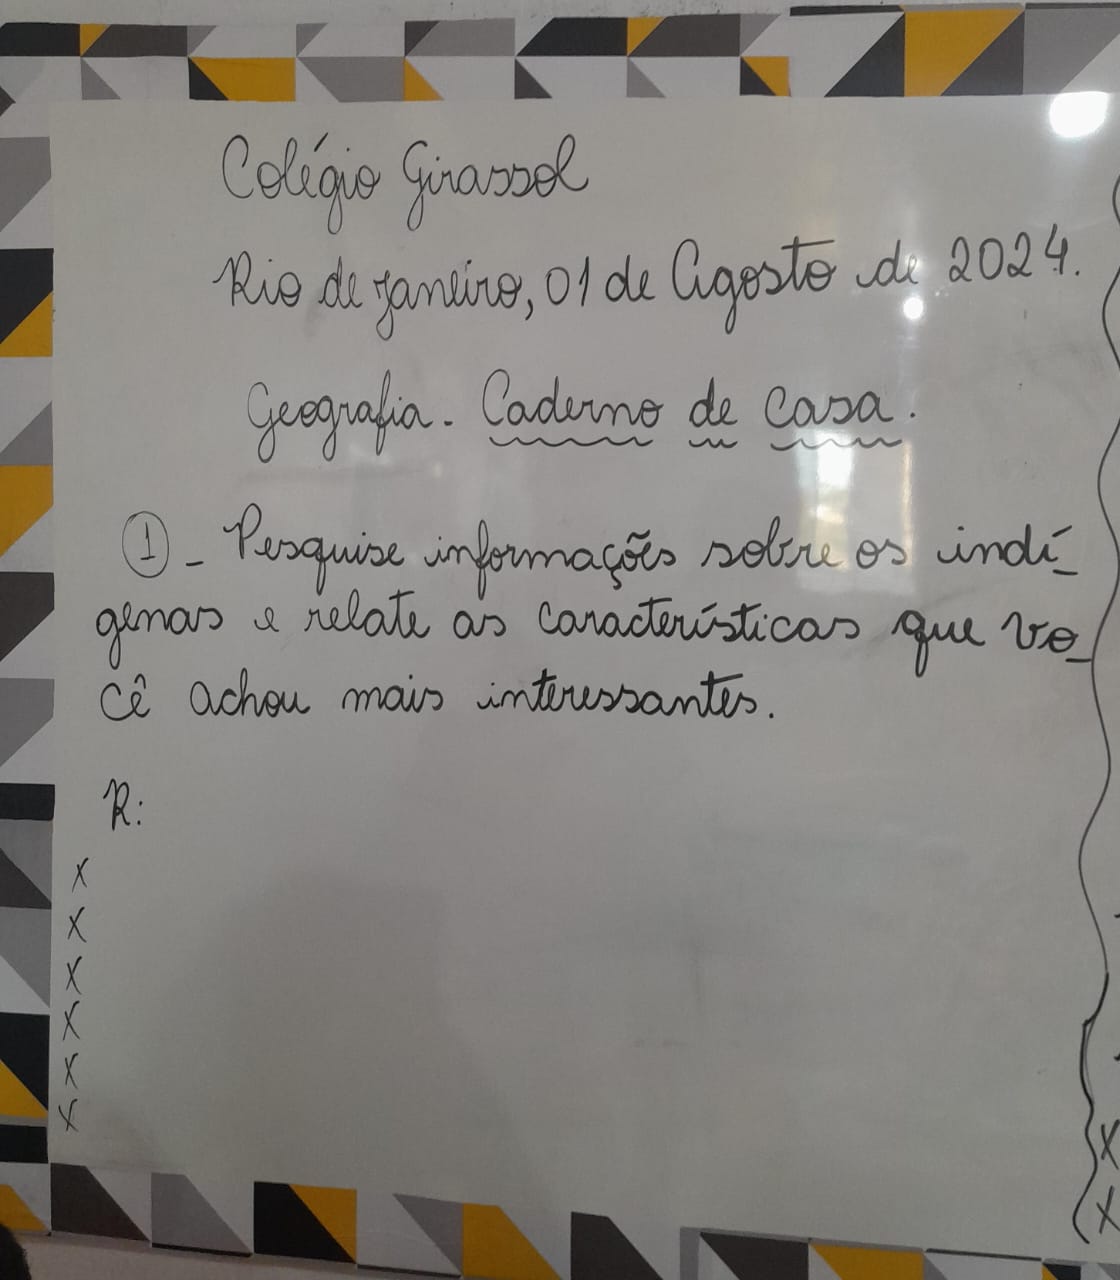 Colégio Girassol
Rio de janeiro, 01 de Agosto de 2024.
Geografia - Caderno de casa.
① - Pesquise informações sobre os indí_
genas e relate as características que vo_
cê achou mais interessantes.
R:
X
X
X
X
X
X
X
X